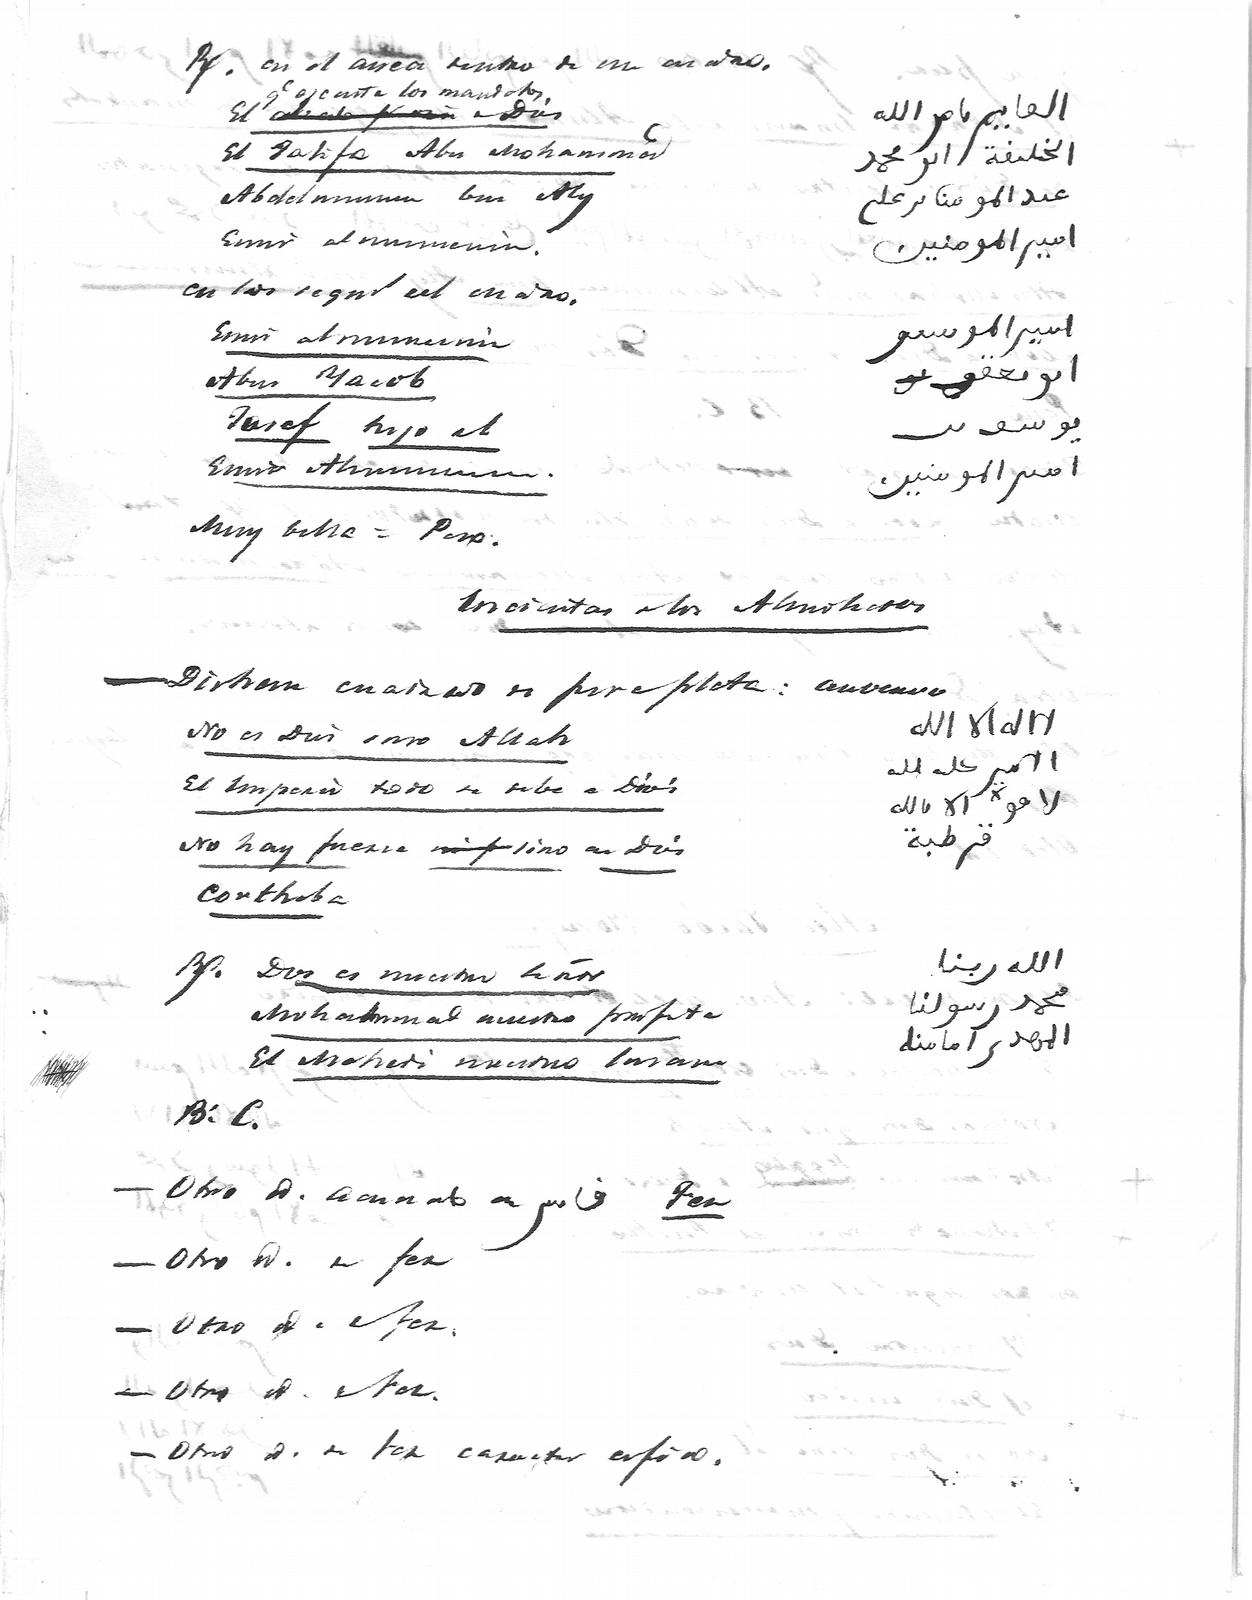 R/. en el area dentro de un cuadro.
qe ejecuta los mandatos
El a Dios القايم بامر الله
El Jalifa Abu Mohammad الخليفة ابو محمد
Abdelmumen ben Aly عبد المومن بن علي
Emir almumenin. امير المومنين
en los segmt del cuadro.
Emir almumenin امير المومنين
Abu Yacob ابو يعقوب
Iusef hijo del يوسف بن
Emir Almumenin. امير المومنين
Muy bella = Pesa.
Inciertas de los Almohades
— Dirhem cuadrado de pura plata: anverso
No es Dios sino Allah لا اله الا الله
El Imperio todo se debe a Dios الامر كله لله
No hay fuerza sino en Dios لا قوة الا بالله
Corthoba قرطبة
R/. Dios es nuestro Señor الله ربنا
Mohammad nuestro profeta محمد رسولنا
El Mahedi nuestro Imam المهدي امامنا
B: C.
— Otro id. acuñado en فاس Fez
— Otro id. de fez
— Otro id. de fez.
— Otro id. de fez.
— Otro id. de fez caracter cufico.